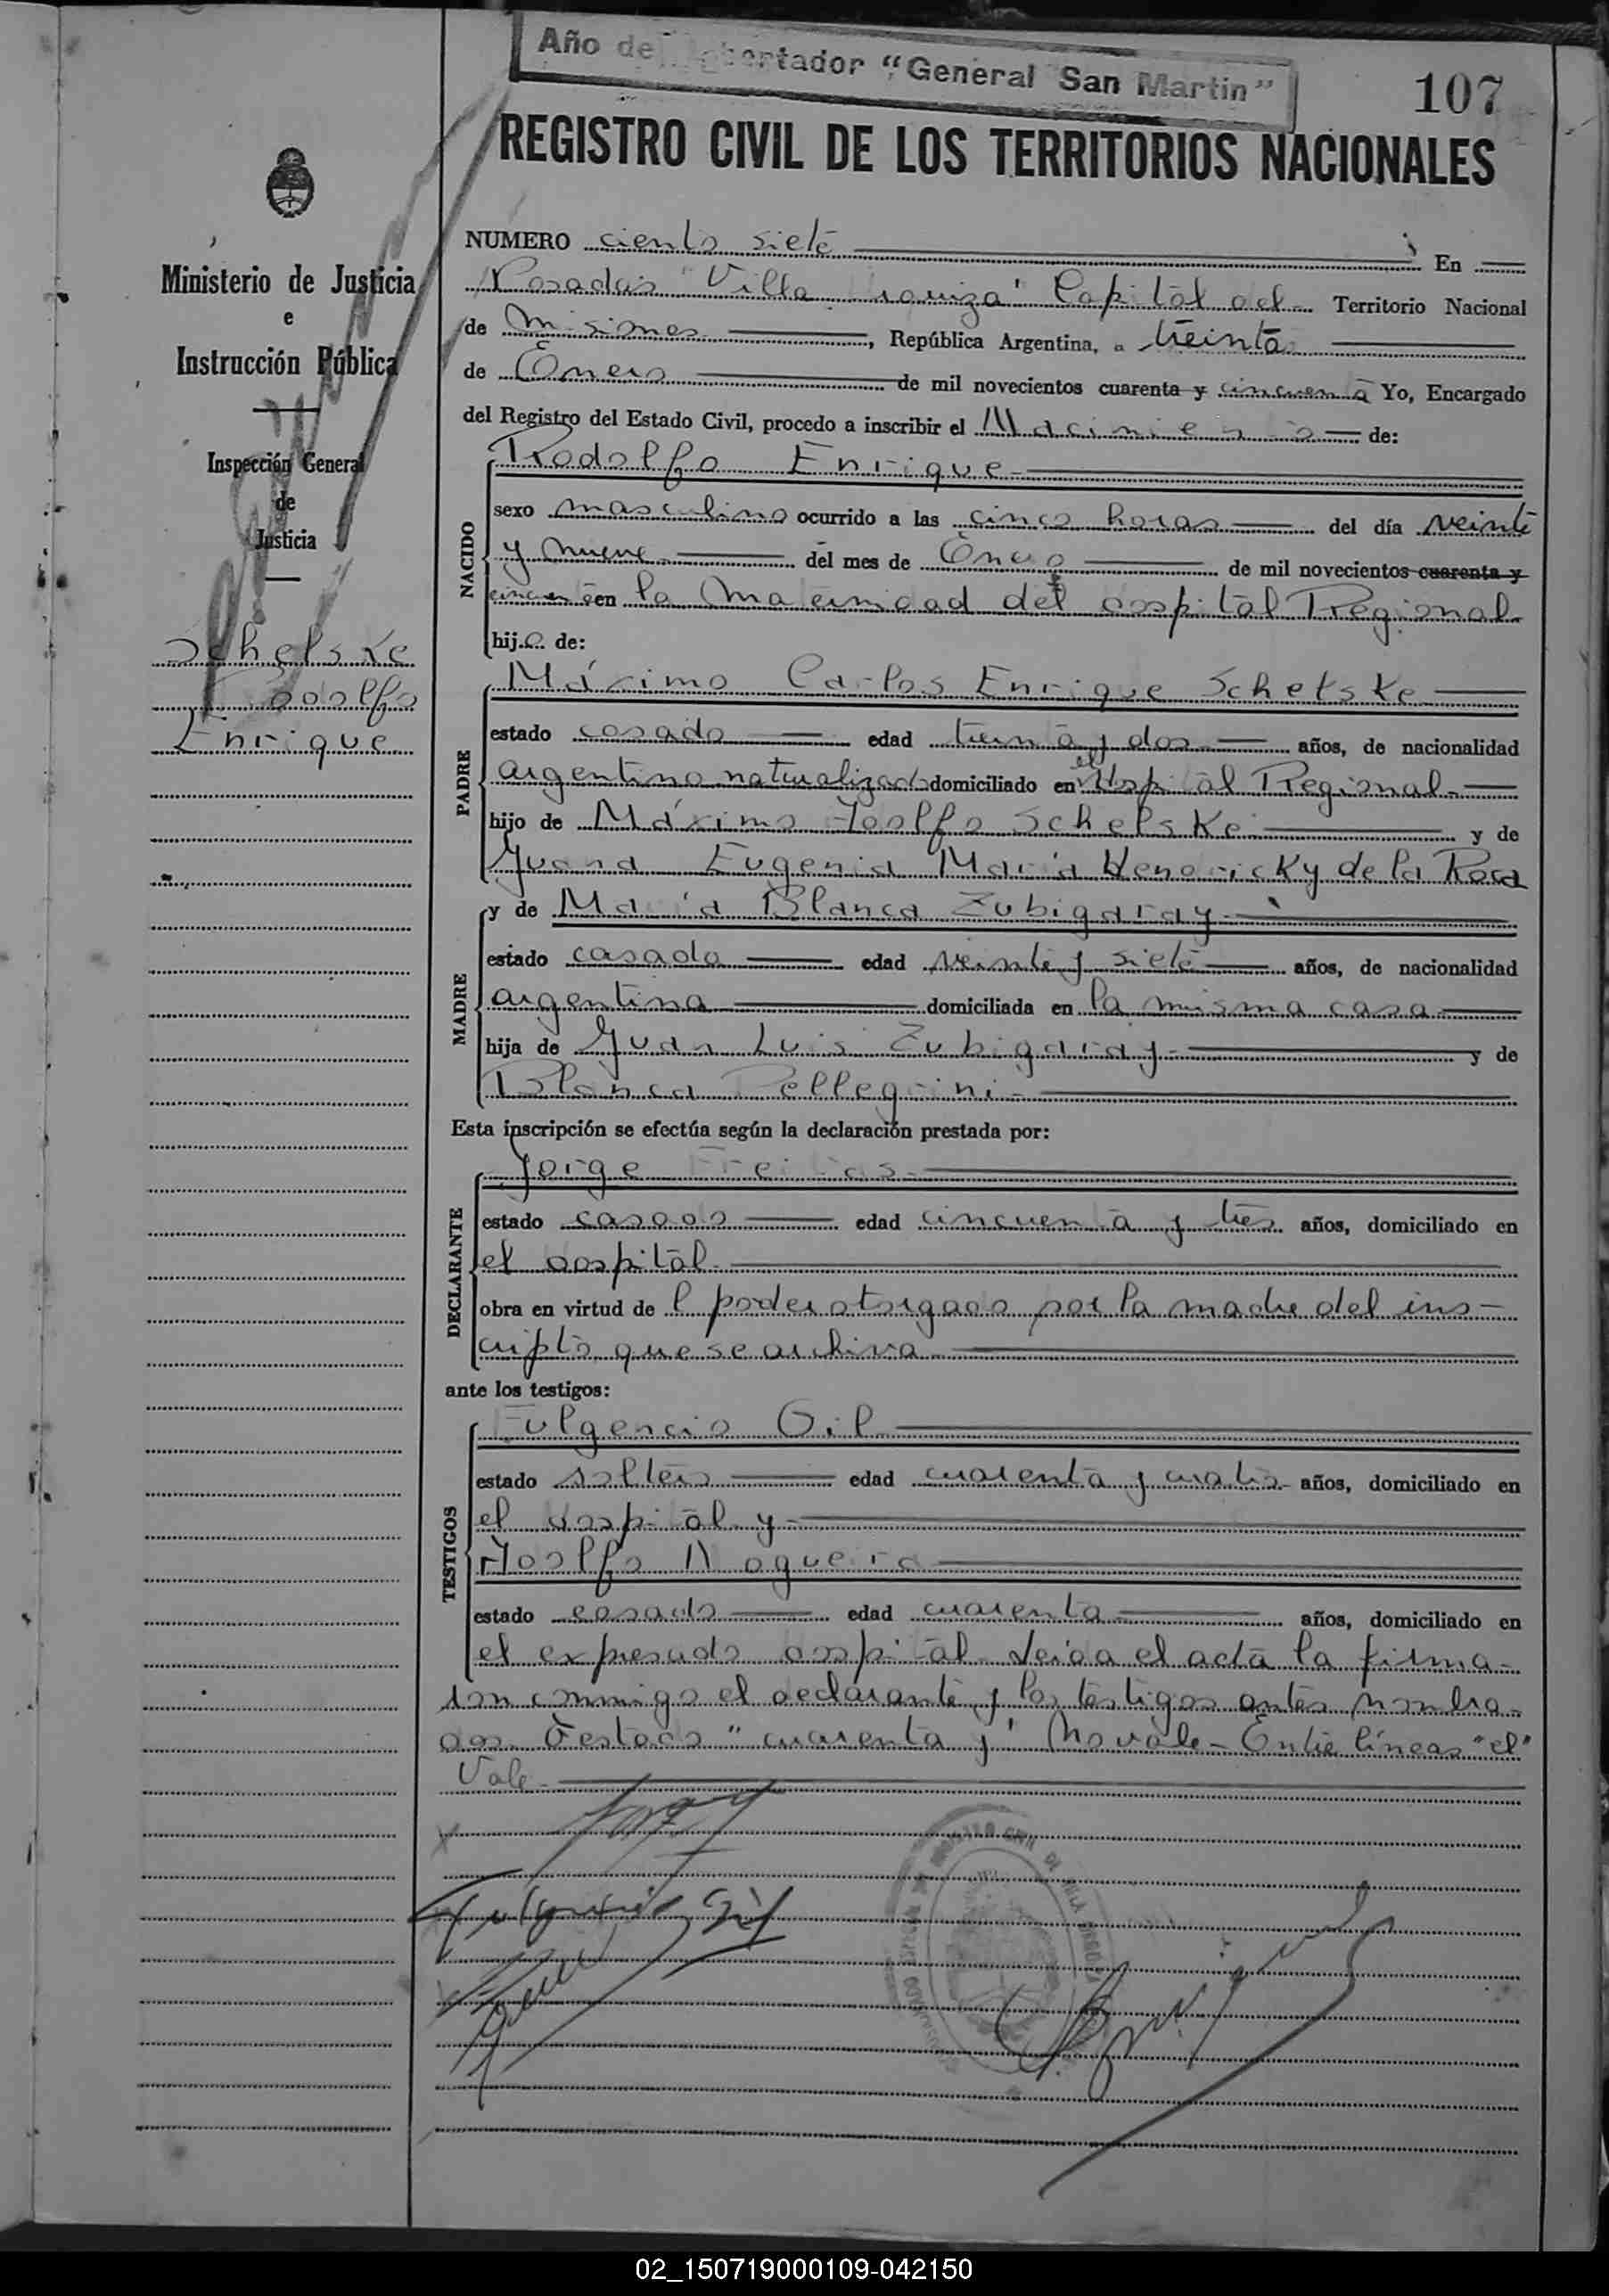 Año del Libertador "General San Martin"
107
REGISTRO CIVIL DE LOS TERRITORIOS NACIONALES
Ministerio de Justicia
e
Instrucción Pública
Inspección General
de
Justicia
Schelske
Rodolfo
Enrique
NUMERO ciento siete En
Posadas "Villa Urquiza" Capital del Territorio Nacional
de Misiones, República Argentina, a treinta
de Enero de mil novecientos cuarenta y cincuenta Yo, Encargado
del Registro del Estado Civil, procedo a inscribir el Nacimiento de:
NACIDO
Rodolfo Enrique
sexo masculino ocurrido a las cinco horas del día veinte
y nueve del mes de Enero de mil novecientos cuarenta y
cincuenta en la Maternidad del ospital Regional
hijo de:
PADRE
Máximo Carlos Enrique Schelske
estado casado edad treinta y dos años, de nacionalidad
argentino naturalizado domiciliado en el Hospital Regional
hijo de Máximo Adolfo Schelske y de
Juana Eugenia María Hendricky de la Roca
MADRE
y de María Blanca Zubigaray
estado casada edad veinte y siete años, de nacionalidad
argentina domiciliada en la misma casa
hija de Juan Luis Zubigaray y de
Blanca Pellegrini
Esta inscripción se efectúa según la declaración prestada por:
DECLARANTE
Jorge Freitas
estado casado edad cincuenta y tres años, domiciliado en
el ospital
obra en virtud de l poder otorgado por la madre del ins-
cripto que se archiva
ante los testigos:
TESTIGOS
Fulgencio Gil
estado soltero edad cuarenta y cuatro años, domiciliado en
el ospital y
Adolfo Nogueira
estado casado edad cuarenta años, domiciliado en
el expresado ospital Leida el acta la firma-
ron conmigo el declarante y los testigos antes nombra-
dos. Testado "cuarenta y" No vale - Entre líneas "el"
Vale
Fulgencio Gil
02_150719000109-042150